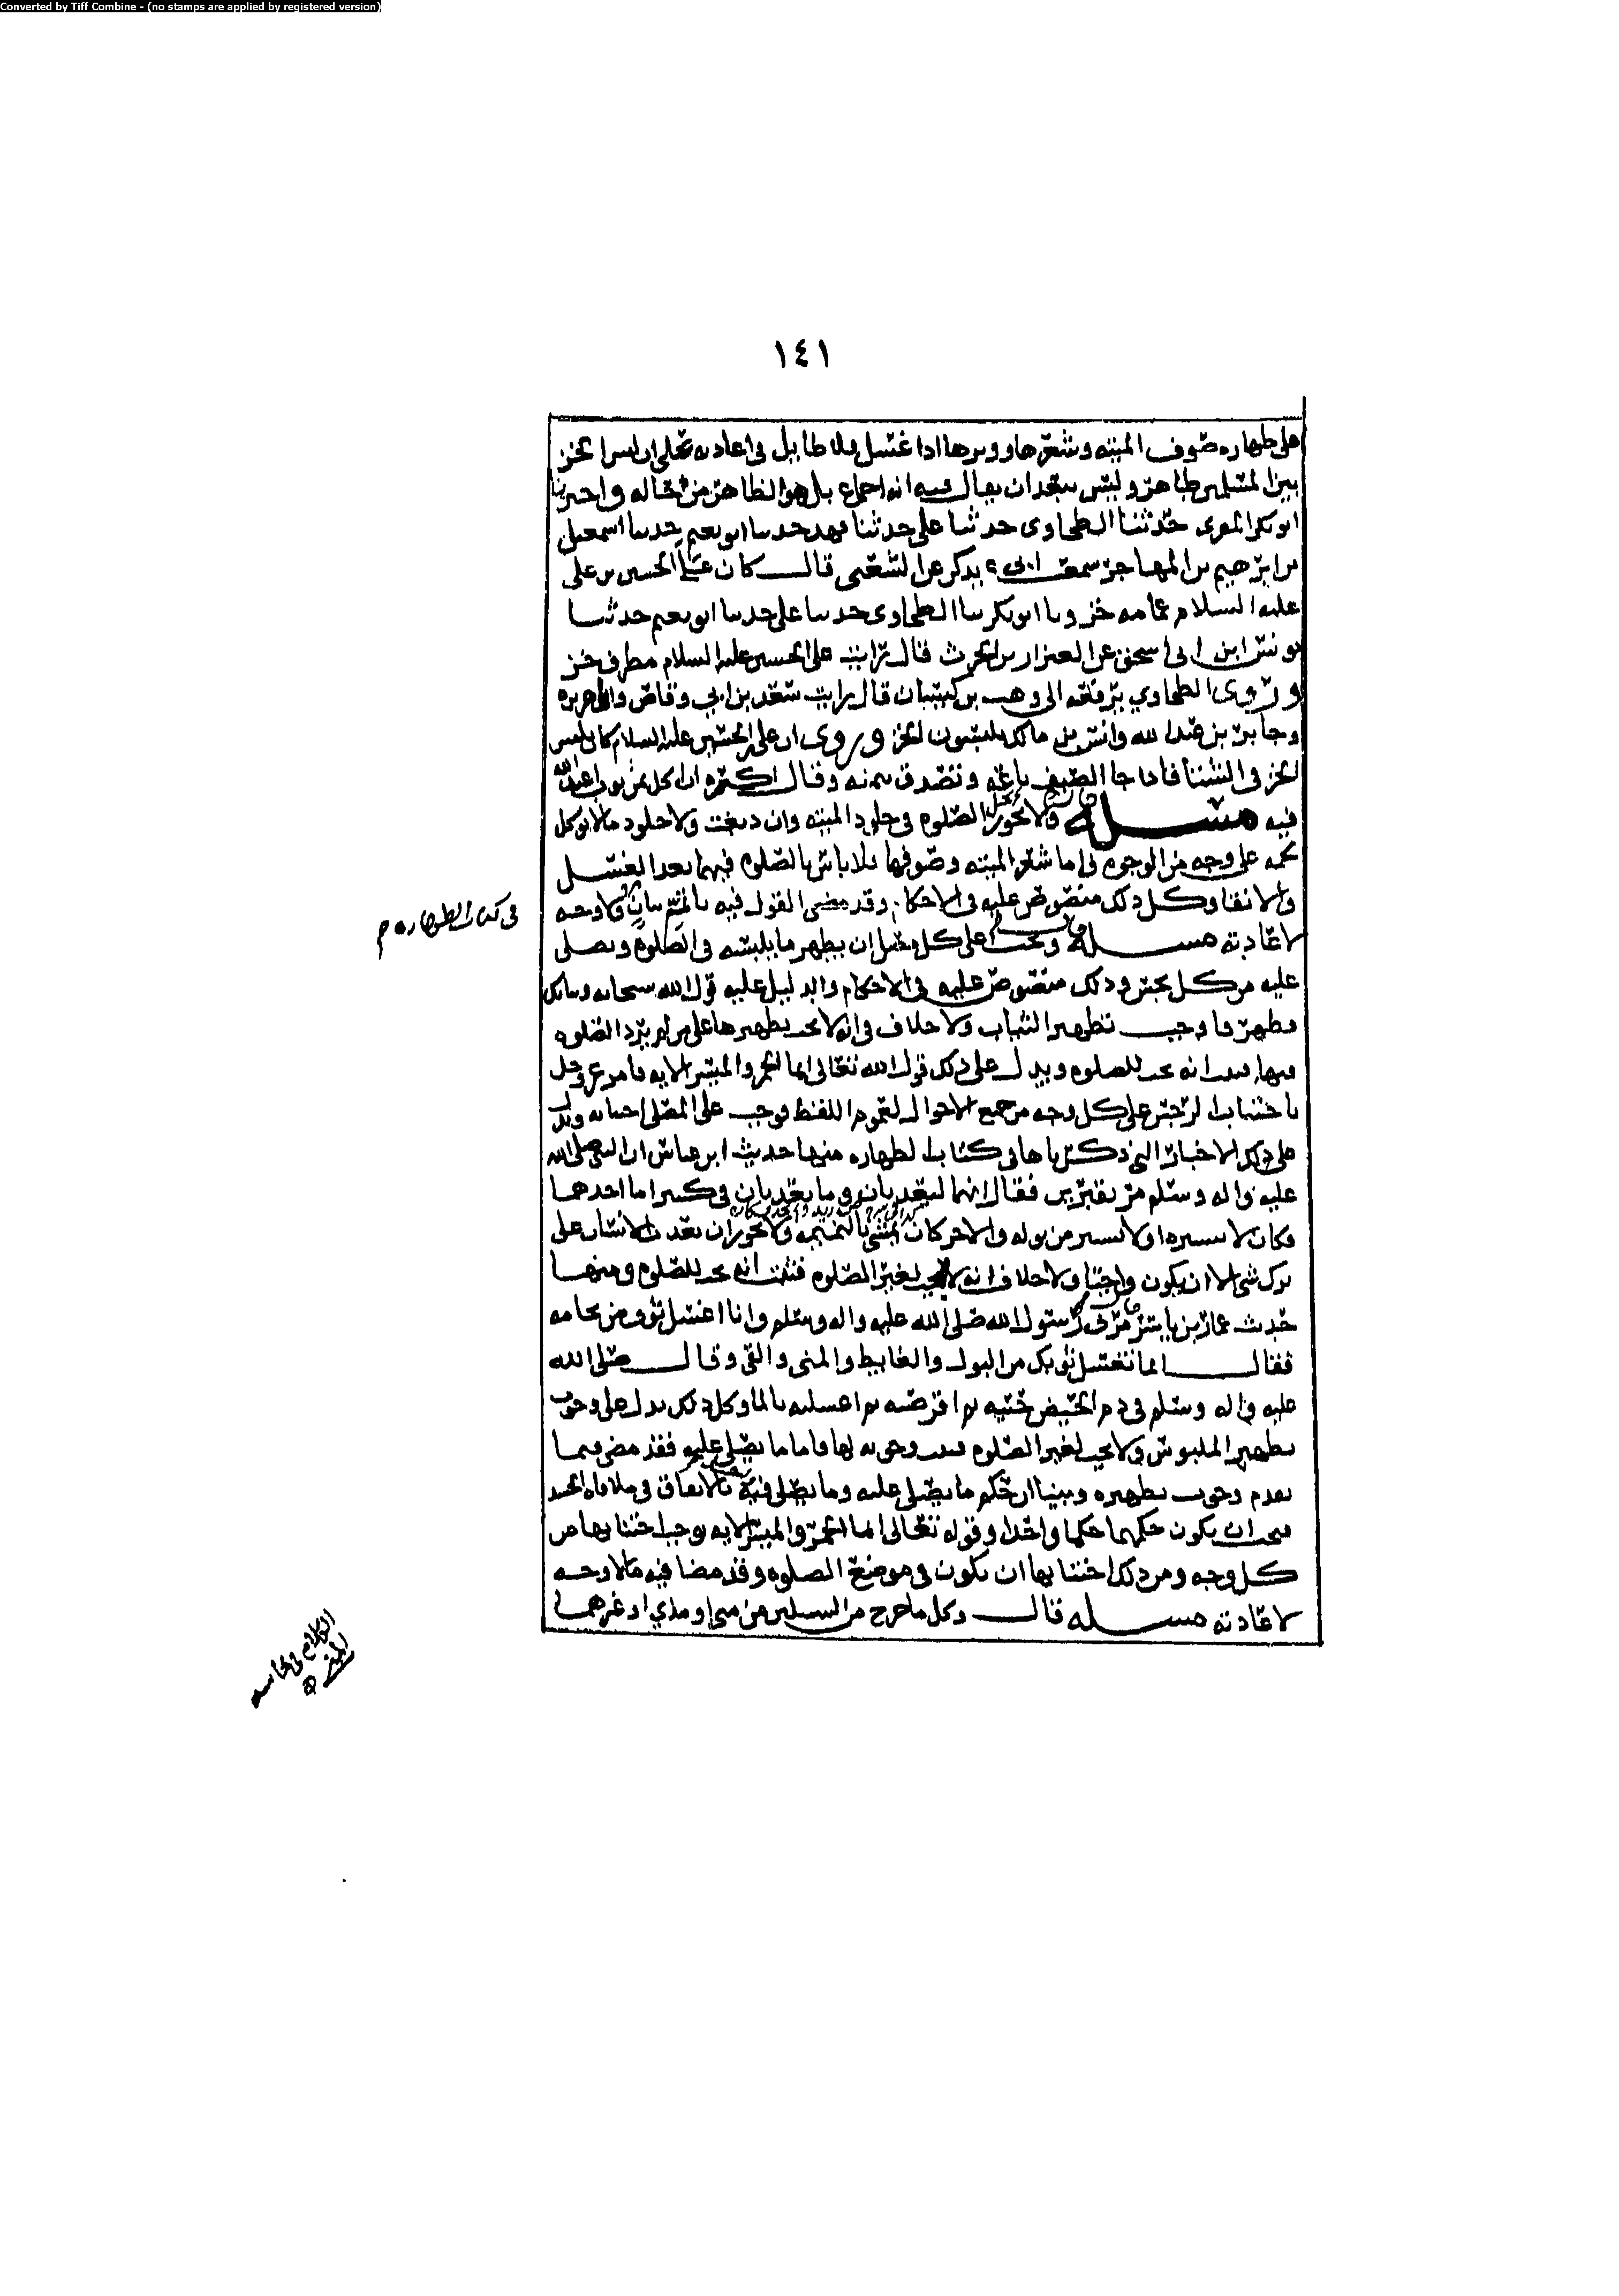 Converted by Tiff Combine - (no stamps are applied by registered version)
١٤١
على طهاره صوف الميته وشعرها ووبرها اذا غسل فلا طايل في اعادته على ان لبس الخز
بين المسلمين ظاهر وليس ببعد ان يقال فيه انه اجماع بل هو الظاهر من حاله واخبرنا
ابو بكر المقري حدثنا الطحاوي حدثنا علي حدثنا فهد حدثنا ابو نعيم حدثنا اسمعيل
بن ابرهيم بن المهاجر سمعت ابي يذكر عن الشعبي قال كان على الحسين بن علي
عليه السلام عمامه خز ونا ابو بكر نا الطحاوي حدثنا علي حدثنا ابو نعيم حدثنا
يونس ابن ابي اسحق عن العيزار بن الحرث قال رايت على الحسين عليه السلام مطرف خز
وروى الطحاوي يرفعه الى وهب بن كيسان قال رايت سعد بن ابي وقاص وابا هريره
وجابر بن عبد الله وانس بن مالك يلبسون الخز وروى ان علي بن الحسين عليه السلام كان يلبس
الخز في الشتا فاذا جا الصيف باعه وتصدق بثمنه وقال اكره ان اكل ثمن ثوب اعبد الله
فيه مسله ولا تجوز الصلوه في جلود الميته وان دبغت ولا جلود ما لا يوكل
لحمه على وجه من الوجوه فاما شعر الميته وصوفها فلا باس بالصلوه فيهما بعد الغسل
والانقا وكل ذلك منصوص عليه في الاحكام وقد مضى القول فيه ولا وجه
في كتاب الطهاره م
لاعادته مسله ويجب على كل مصل ان يطهر ما يلبسه في الصلوه ويصلي
عليه من كل نجس وذلك منصوص عليه في الاحكام والدليل عليه قول الله سبحانه وثيابك
فطهر فاوجب تطهير الثياب ولا خلاف في انه لا يجب تطهيرها على من لم يرد الصلوه
فيها فثبت انه يجب للصلوه ويدل على ذلك قول الله تعالى انما الخمر والميسر الايه فامر عز وجل
باجتناب الرجس على كل وجه من جميع الاحوال لعموم اللفظ فوجب على المصلي اجتنابه ويدل
على ذلك الاخبار التي ذكرناها في كتاب الطهاره منها حديث ابن عباس ان النبي صلى الله
عليه واله وسلم مر بقبرين فقال انهما ليعذبان وما يعذبان في كبير اما احدهما
فكان لا يستتره او لا يستبرئ من بوله والاخر كان يمشي بالنميمه ولا يجوز ان يعذب الانسان على
ترك شي الا ان يكون واجبا ولا خلاف انه لا يجب لغير الصلوه فثبت انه يجب للصلوه ومنها
حديث عمار بن ياسر مر بي رسول الله صلى الله عليه واله وسلم وانا اغسل ثوبي من نخامه
فقال انما تغسل ثوبك من البول والغايط والمني والقي وقال صلى الله
عليه واله وسلم في دم الحيض حتيه ثم اقرصيه ثم اغسليه بالما وكل ذلك يدل على وجوب
تطهير الملبوس ولا يجب لغير الصلوه فثبت وجوبه لها فاما ما يصلي عليه فقد مضى فيما
تقدم وجوب تطهيره وبينا ان حكم ما يصلي عليه وما يصلي فيه بالاتفاق في ملاقاه الجسد
فيجب ان يكون حكمهما حكما واحدا وقوله تعالى انما الخمر والميسر الايه يوجب اجتنابها من
كل وجه ومن ذلك اجتنابها ان تكون في موضع الصلوه وقد مضا فيه ما لا وجه
لاعادته مسله قال وكل ما خرج من السبيلين من مني او مذي او غيرهما
الكلام في نجاسه
المني